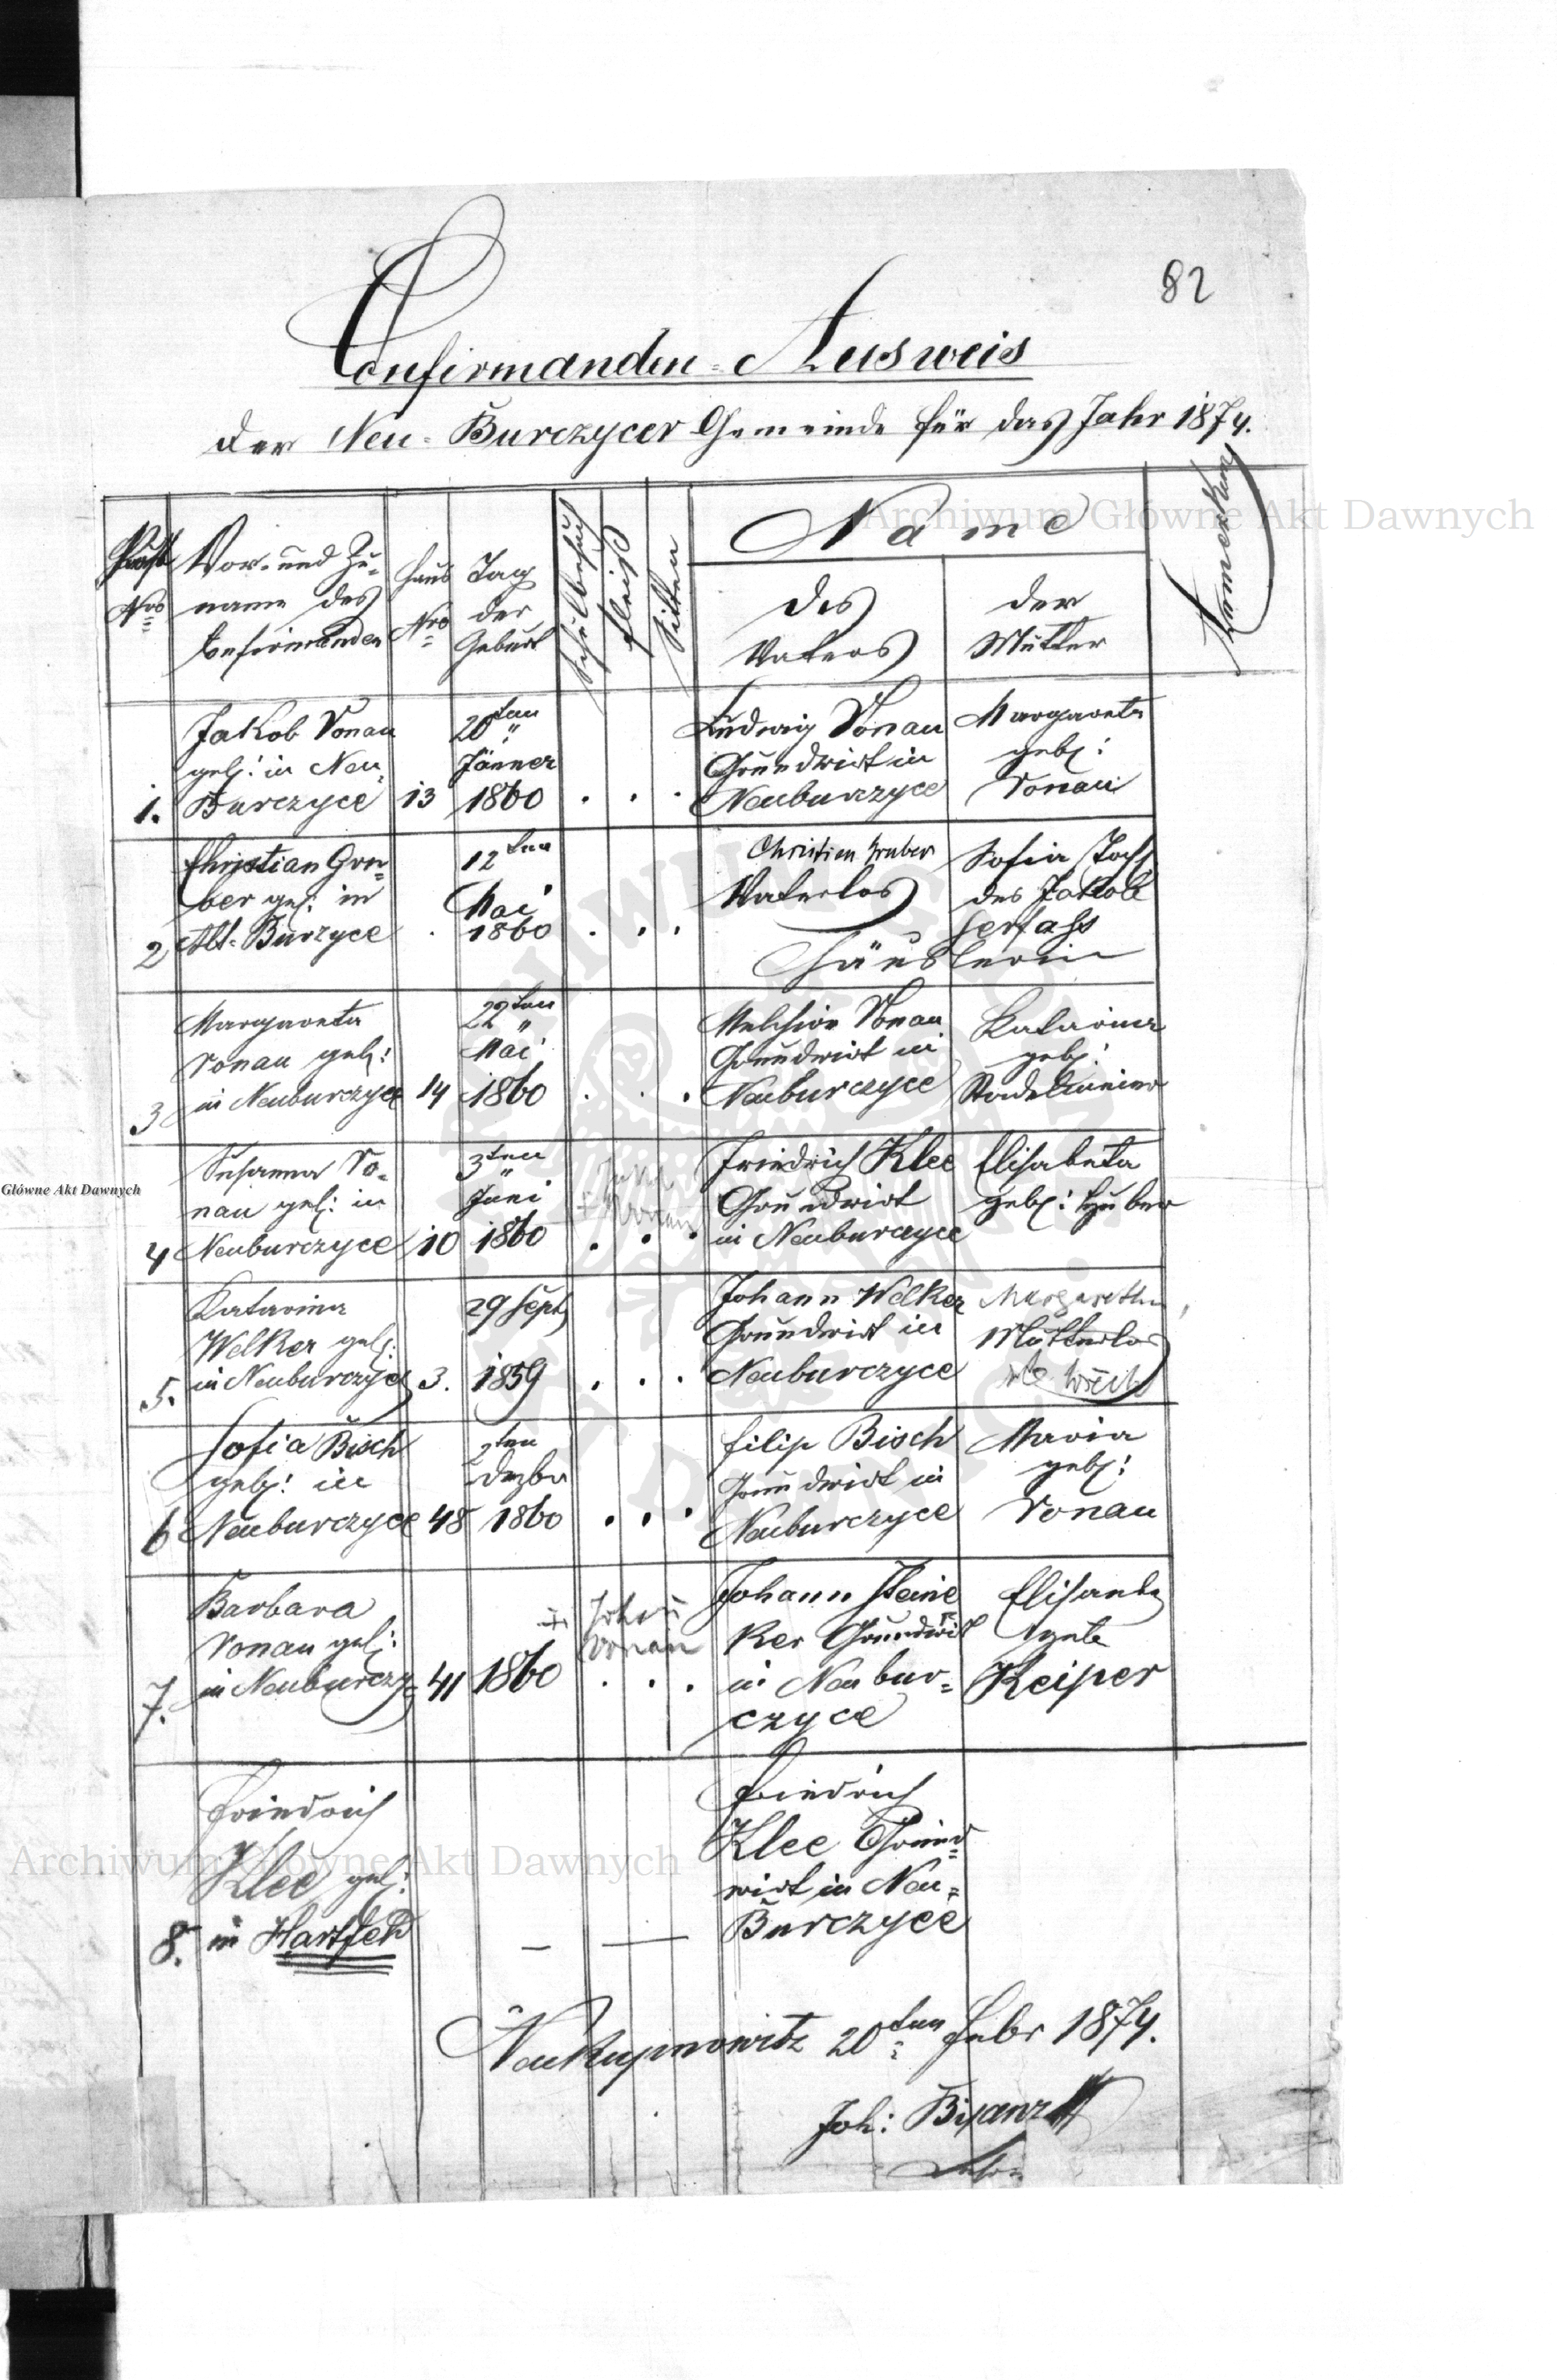 82
Confirmanden-Ausweis
der Neu-Burczycer Gemeinde für das Jahr 1874.
Nro
Vor- und Zu-
name des
Confirmanden
Haus
Nro
Tag
der
Geburt
Schulbesuch
Fleiß
Sitten
Name
des
Vaters
der
Mutter
Anmerkung
1.
Jakob Vonau
geb: in Neu-
Burczyce
13
20ten
Jänner
1860
Ludwig Vonau
Grundwirt in
Neuburczyce
Margareta
geb:
Vonau
2
Christian Gru-
ber geb: in
Alt-Burzyce
12ten
Mai
1860
Christian Gruber
Vaterlos
Sofia Tocht
des Jakob
Gerhass
Häuslerin
3
Margareta
Vonau geb:
in Neuburczyce
14
22ten
Mai
1860
Melchior Vonau
Grundwirt in
Neuburczyce
Katarina
geb:
4
Susanna Vo-
nau geb: in
Neuburczyce
10
3ten
Juni
1860
Vonau
Friedrich Klee
Grundwirt
in Neuburczyce
Elisabeta
geb: Huber
5.
Katarina
Welker geb:
in Neuburczyce
3.
29 Sept
1859
Johann Welker
Grundwirt in
Neuburczyce
Margaretha
Mutterlos
6
Sofia Bisch
geb: in
Neuburczyce
48
2ten
Dezbr
1860
Filip Bisch
Grundwirt in
Neuburczyce
Maria
geb:
Vonau
7.
Barbara
Vonau geb:
in Neuburczyce
41
1860
Johann
Vonau
Johann Steine
ker Grundwirt
in Neubur-
czyce
Keiper
8.
Friedrich
Klee geb:
in Hartfeld
Friedrich
Klee Grund-
wirt in Neu-
Burczyce
Neukupnowitz 20ten Febr 1874.
Joh: Bisanz
Archiwum Główne Akt Dawnych
Główne Akt Dawnych
Archiwum Główne Akt Dawnych